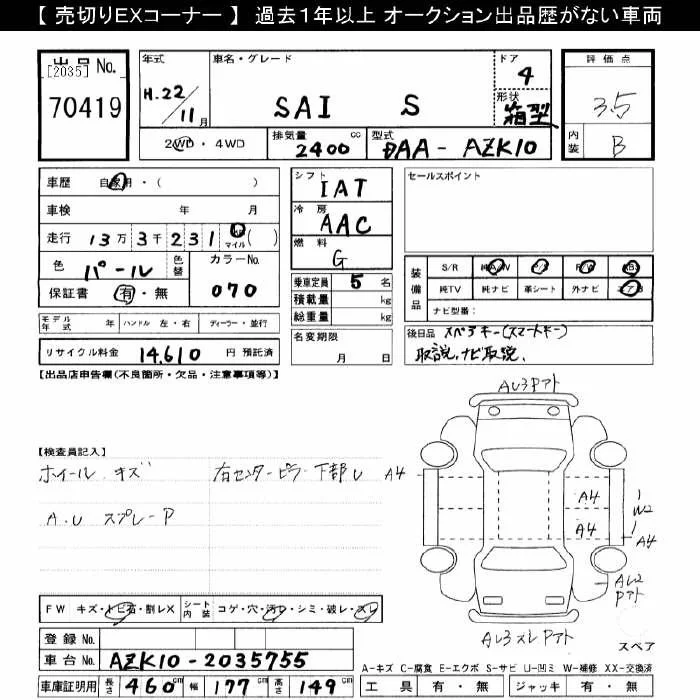 【 売切りEXコーナー 】 過去１年以上 オークション出品歴がない車両
出品 No.
[2035]
70419
年式
H.22/11月
車名・グレード
SAI S
ドア
4
形状
箱型
評価点
3.5
内装
B
2WD・4WD
排気量
2400cc
型式
DAA-AZK10
車歴 自家用・( )
車検 年 月
走行 13万 3千 231 km マイル ( )
色 パール 色替 カラーNo.
保証書 有・無 070
モデル年式 年 ハンドル 左・右 ディーラー・並行
リサイクル料金 14,610 円 預託済
シフト
IAT
冷房
AAC
燃料
G
乗車定員 5 名
積載量 kg
総重量 kg
名変期限
月 日
セールスポイント
装備品
S/R 純A/W P/S P/W ABS
純TV 純ナビ 革シート 外ナビ エアB
ナビ型番:
後日品 スペアキー(スマートキー)
取説、ナビ取説、
【出品店申告欄(不良箇所・欠品・注意事項等)】
【検査員記入】
ホイール キズ
右センターピラー下部U A4
A.U スプレーP
AU3Pアト
A4
A4
W2
A4
AU2
Pアト
AU3スレPアト
スペア
FW キズ・トビ石・割レX
シート内装 コゲ・穴・汚レ・シミ・破レ・スレ
登録 No.
車台 No. AZK10-2035755
車庫証明用 長さ 460 cm 幅 177 cm 高さ 149 cm
A-キズ C-腐食 E-エクボ S-サビ U-凹ミ W-補修 XX-交換済
工具 有・無 ジャッキ 有・無